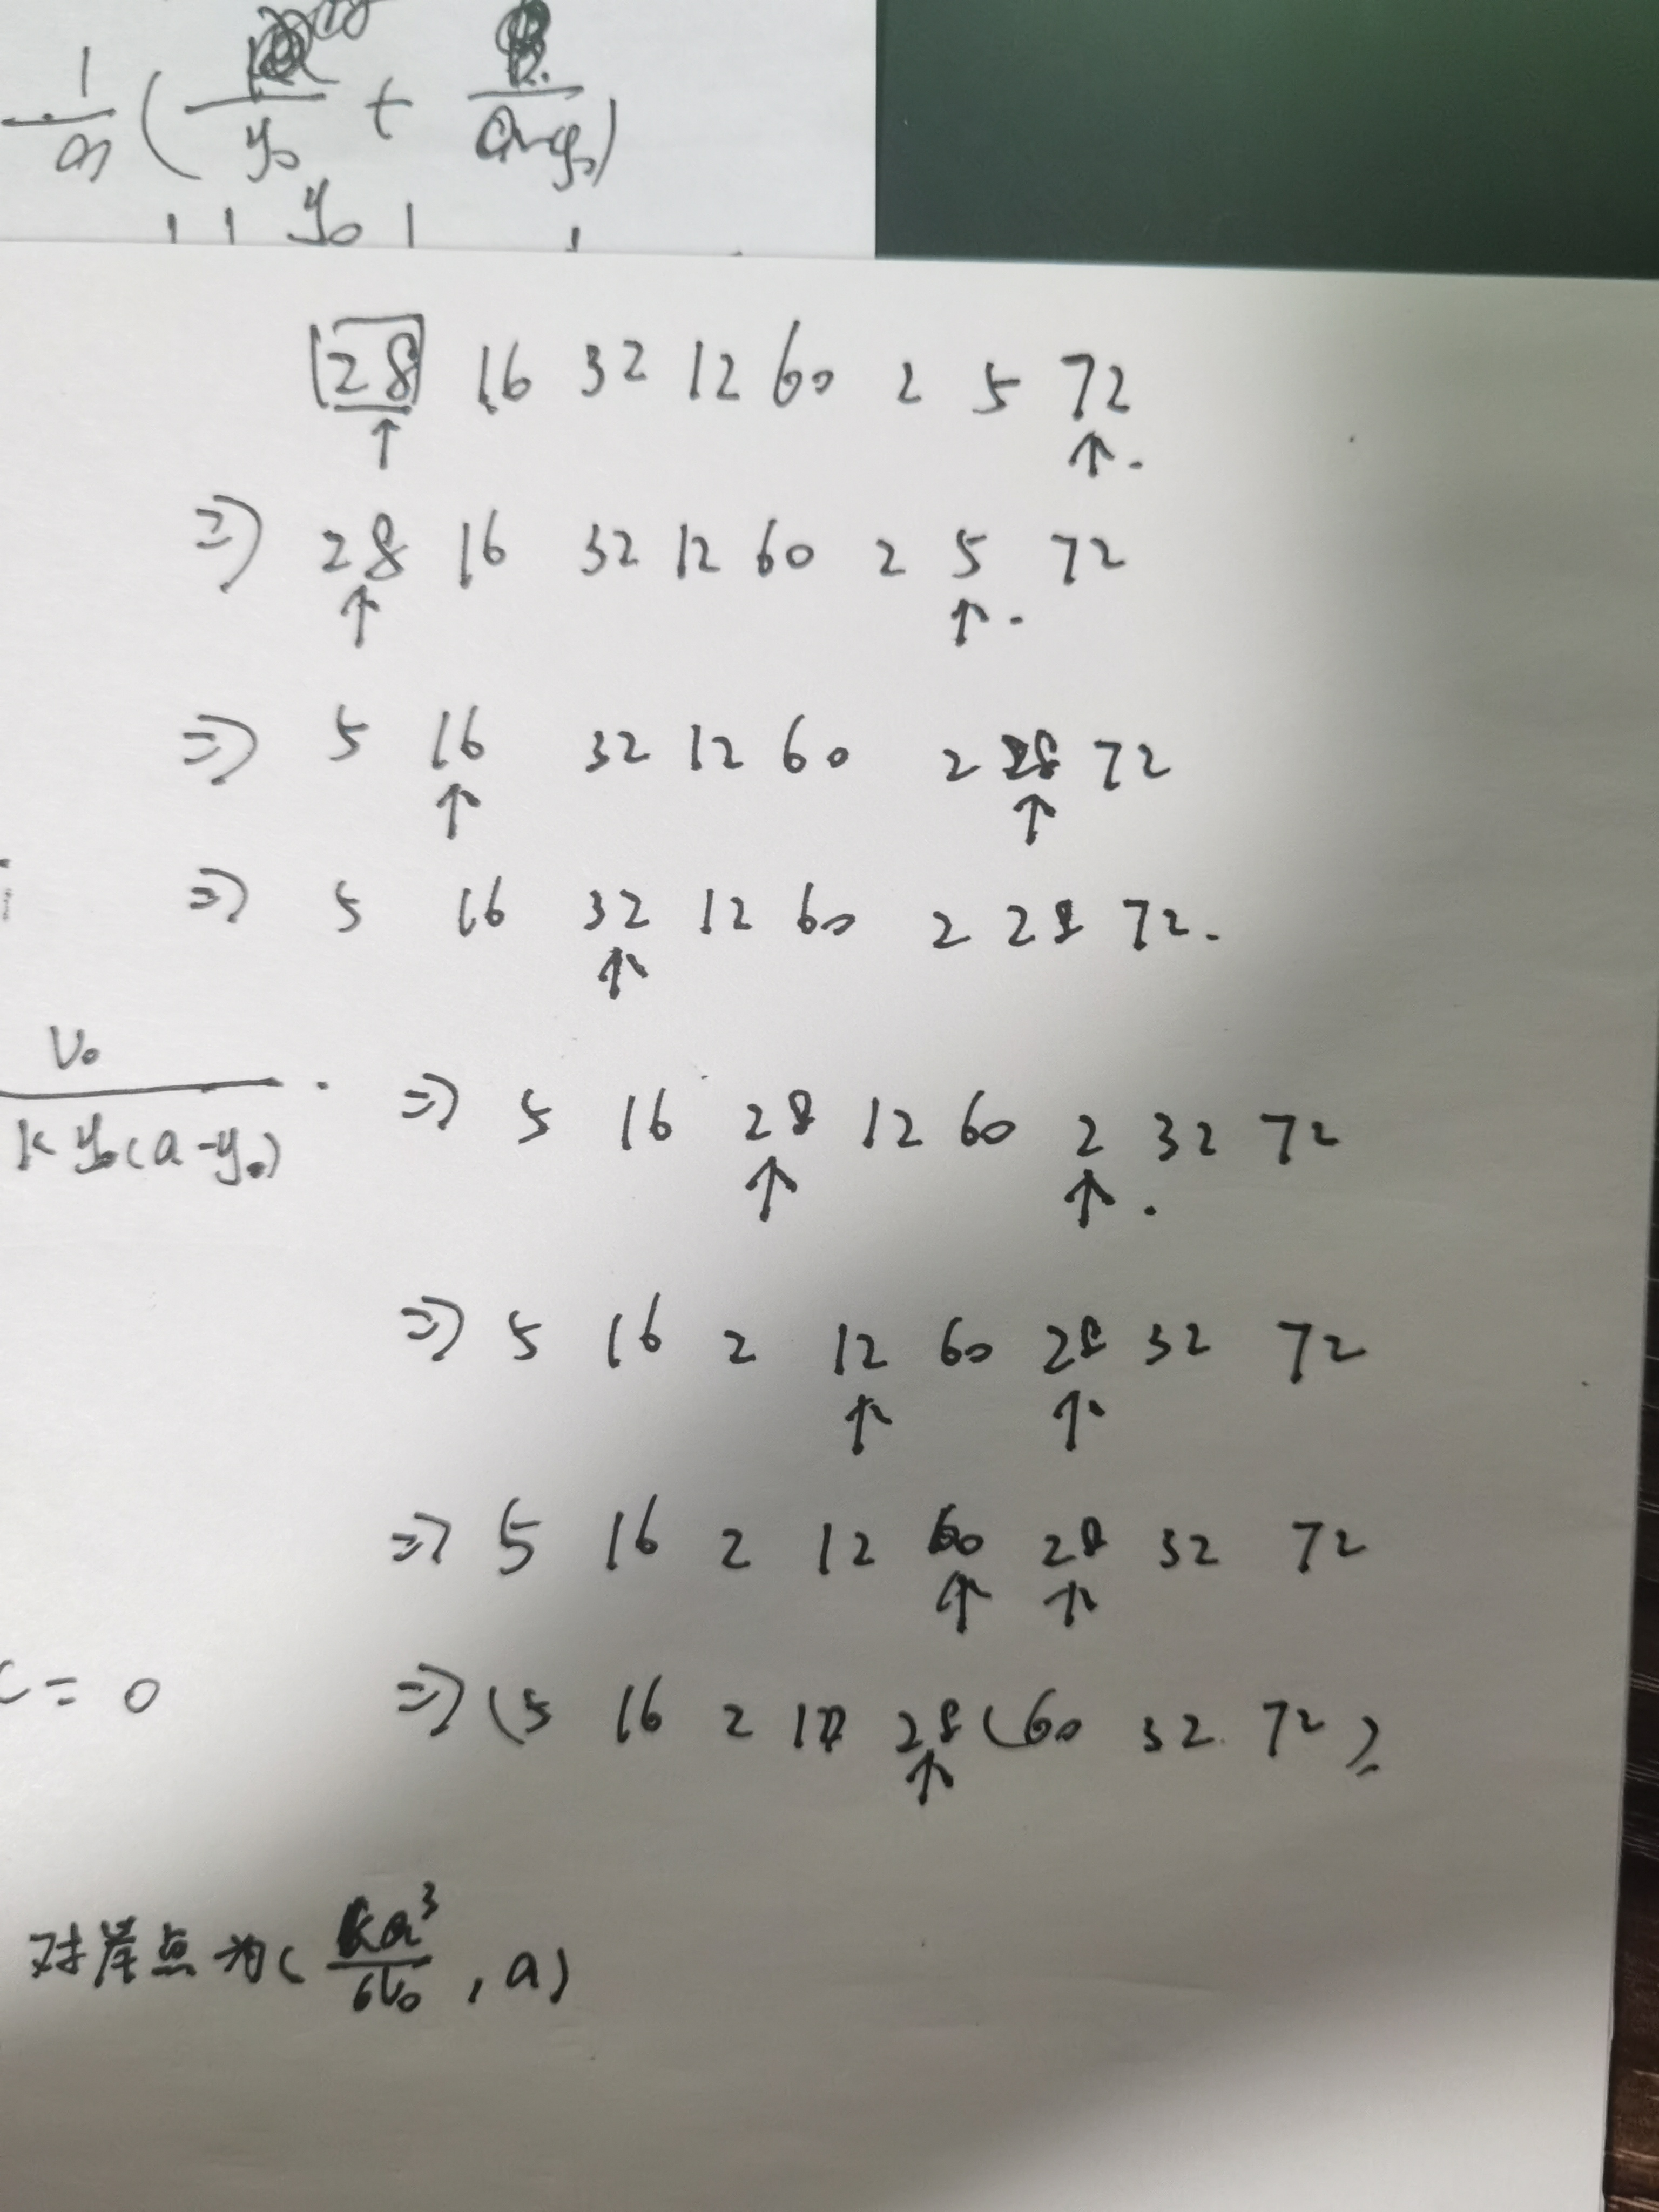 1/a ( /y₀ + /a-y₀ )
y₀
28 16 32 12 60 2 5 72
↑ ↑.
⇒ 28 16 32 12 60 2 5 72
↑ ↑.
⇒ 5 16 32 12 60 2 28 72
↑ ↑
⇒ 5 16 32 12 60 2 28 72.
↑
V₀/k y₀(a-y₀) .
⇒ 5 16 28 12 60 2 32 72
↑ ↑.
⇒ 5 16 2 12 60 28 32 72
↑ ↑
⇒ 5 16 2 12 60 28 32 72
↑ ↑
= 0
⇒ (5 16 2 12 28 (60 32 72)
↑
对岸点为( ka³/6V₀ , a)